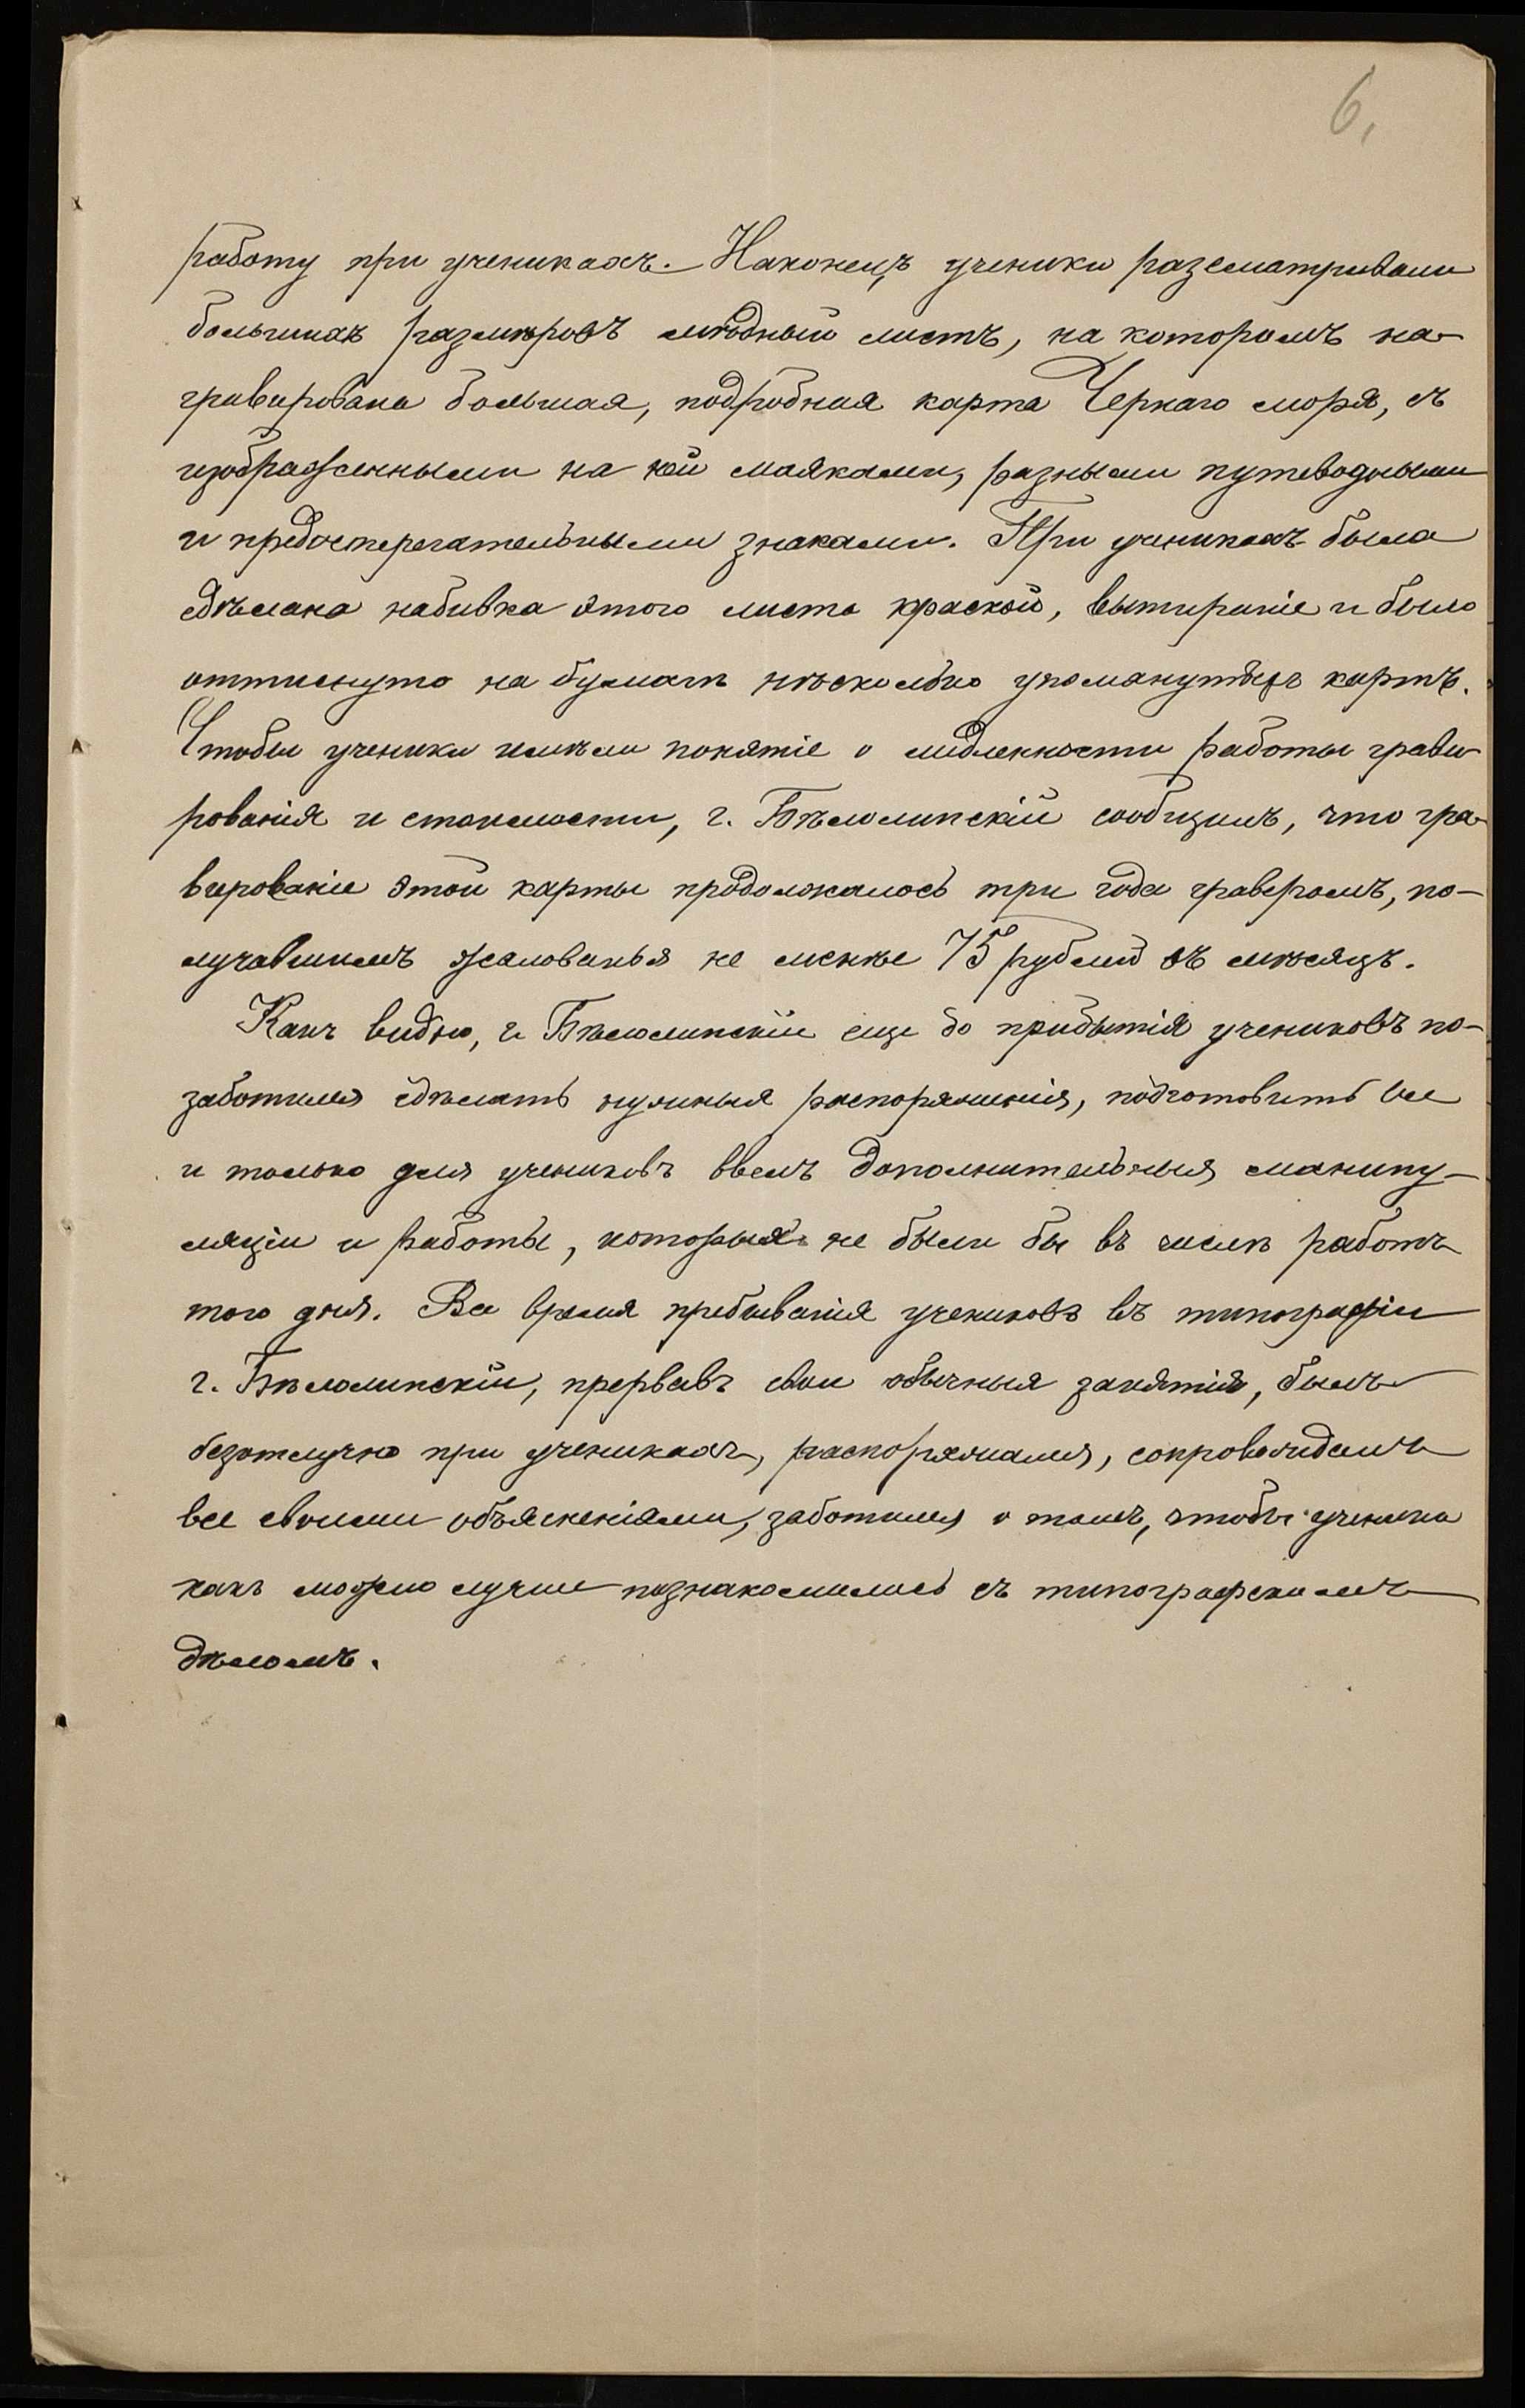 6,
работу при ученикахъ. Наконецъ ученики разсматривали
большихъ размѣровъ мѣдный листъ, на которомъ на-
гравирована большая, подробная карта Чернаго моря, съ
изображенными на ней маяками, разными путеводными
и предостерегательными знаками. При ученикахъ была
сдѣлана набивка этого листа краской, вытираніе и было
оттиснуто на бумагѣ нѣсколько упомянутыхъ картъ.
Чтобы ученики имѣли понятіе о медленности работы грави-
рованія и стоимости, г. Бѣлолипскій сообщилъ, что гра-
вированіе этой карты продолжалось три года граверомъ, по-
лучавшимъ жалованья не менѣе 75 рублей въ мѣсяцъ.
Какъ видно, г. Бѣлолипскій еще до прибытія учениковъ по-
заботился сдѣлать нужныя распоряженія, подготовить все
и только для учениковъ ввелъ дополнительныя манипу-
ляціи и работы, которыя не были бы въ числѣ работъ
того дня. Все время пребыванія учениковъ въ типографіи
г. Бѣлолипскій, прервавъ свои обычныя занятія, былъ
безотлучно при ученикахъ, распоряжался, сопровождалъ
все своими объясненіями, заботился о томъ, чтобы ученики
какъ можно лучше познакомились съ типографскимъ
дѣломъ.